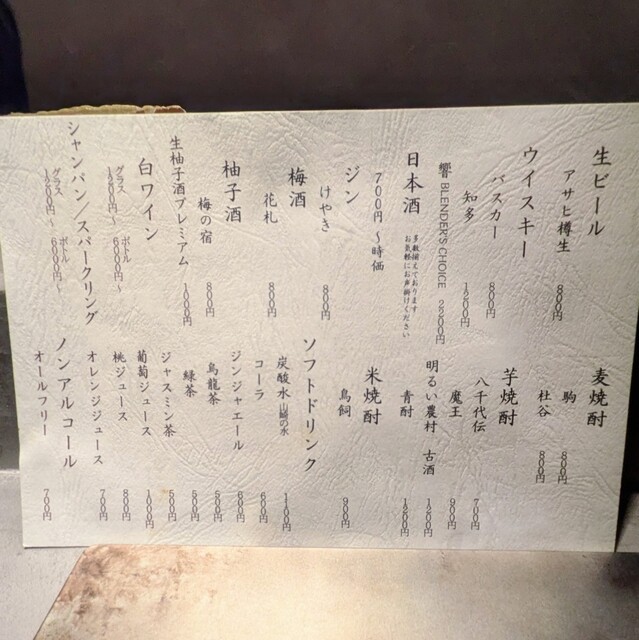 生ビール
アサヒ樽生 800円
ウイスキー
バスカー 800円
知多 1200円
響 BLENDER'S CHOICE 2200円
日本酒
多数揃えております
お気軽にお声掛けください
700円～時価
ジン
けやき 800円
梅酒
花札 800円
柚子酒
梅の宿 800円
生柚子酒プレミアム 1000円
白ワイン
グラス ボトル
1200円～ 6000円～
シャンパン/スパークリング
グラス ボトル
1200円～ 6000円～
麦焼酎
駒 800円
杜谷 800円
芋焼酎
八千代伝 700円
魔王 900円
明るい農村 古酒 1200円
青酎
米焼酎
鳥飼 900円
ソフトドリンク
炭酸水 山崎の水 1100円
コーラ 600円
ジンジャエール 600円
烏龍茶 500円
緑茶 500円
ジャスミン茶 500円
葡萄ジュース 1000円
桃ジュース 800円
オレンジジュース 700円
ノンアルコール
オールフリー 700円